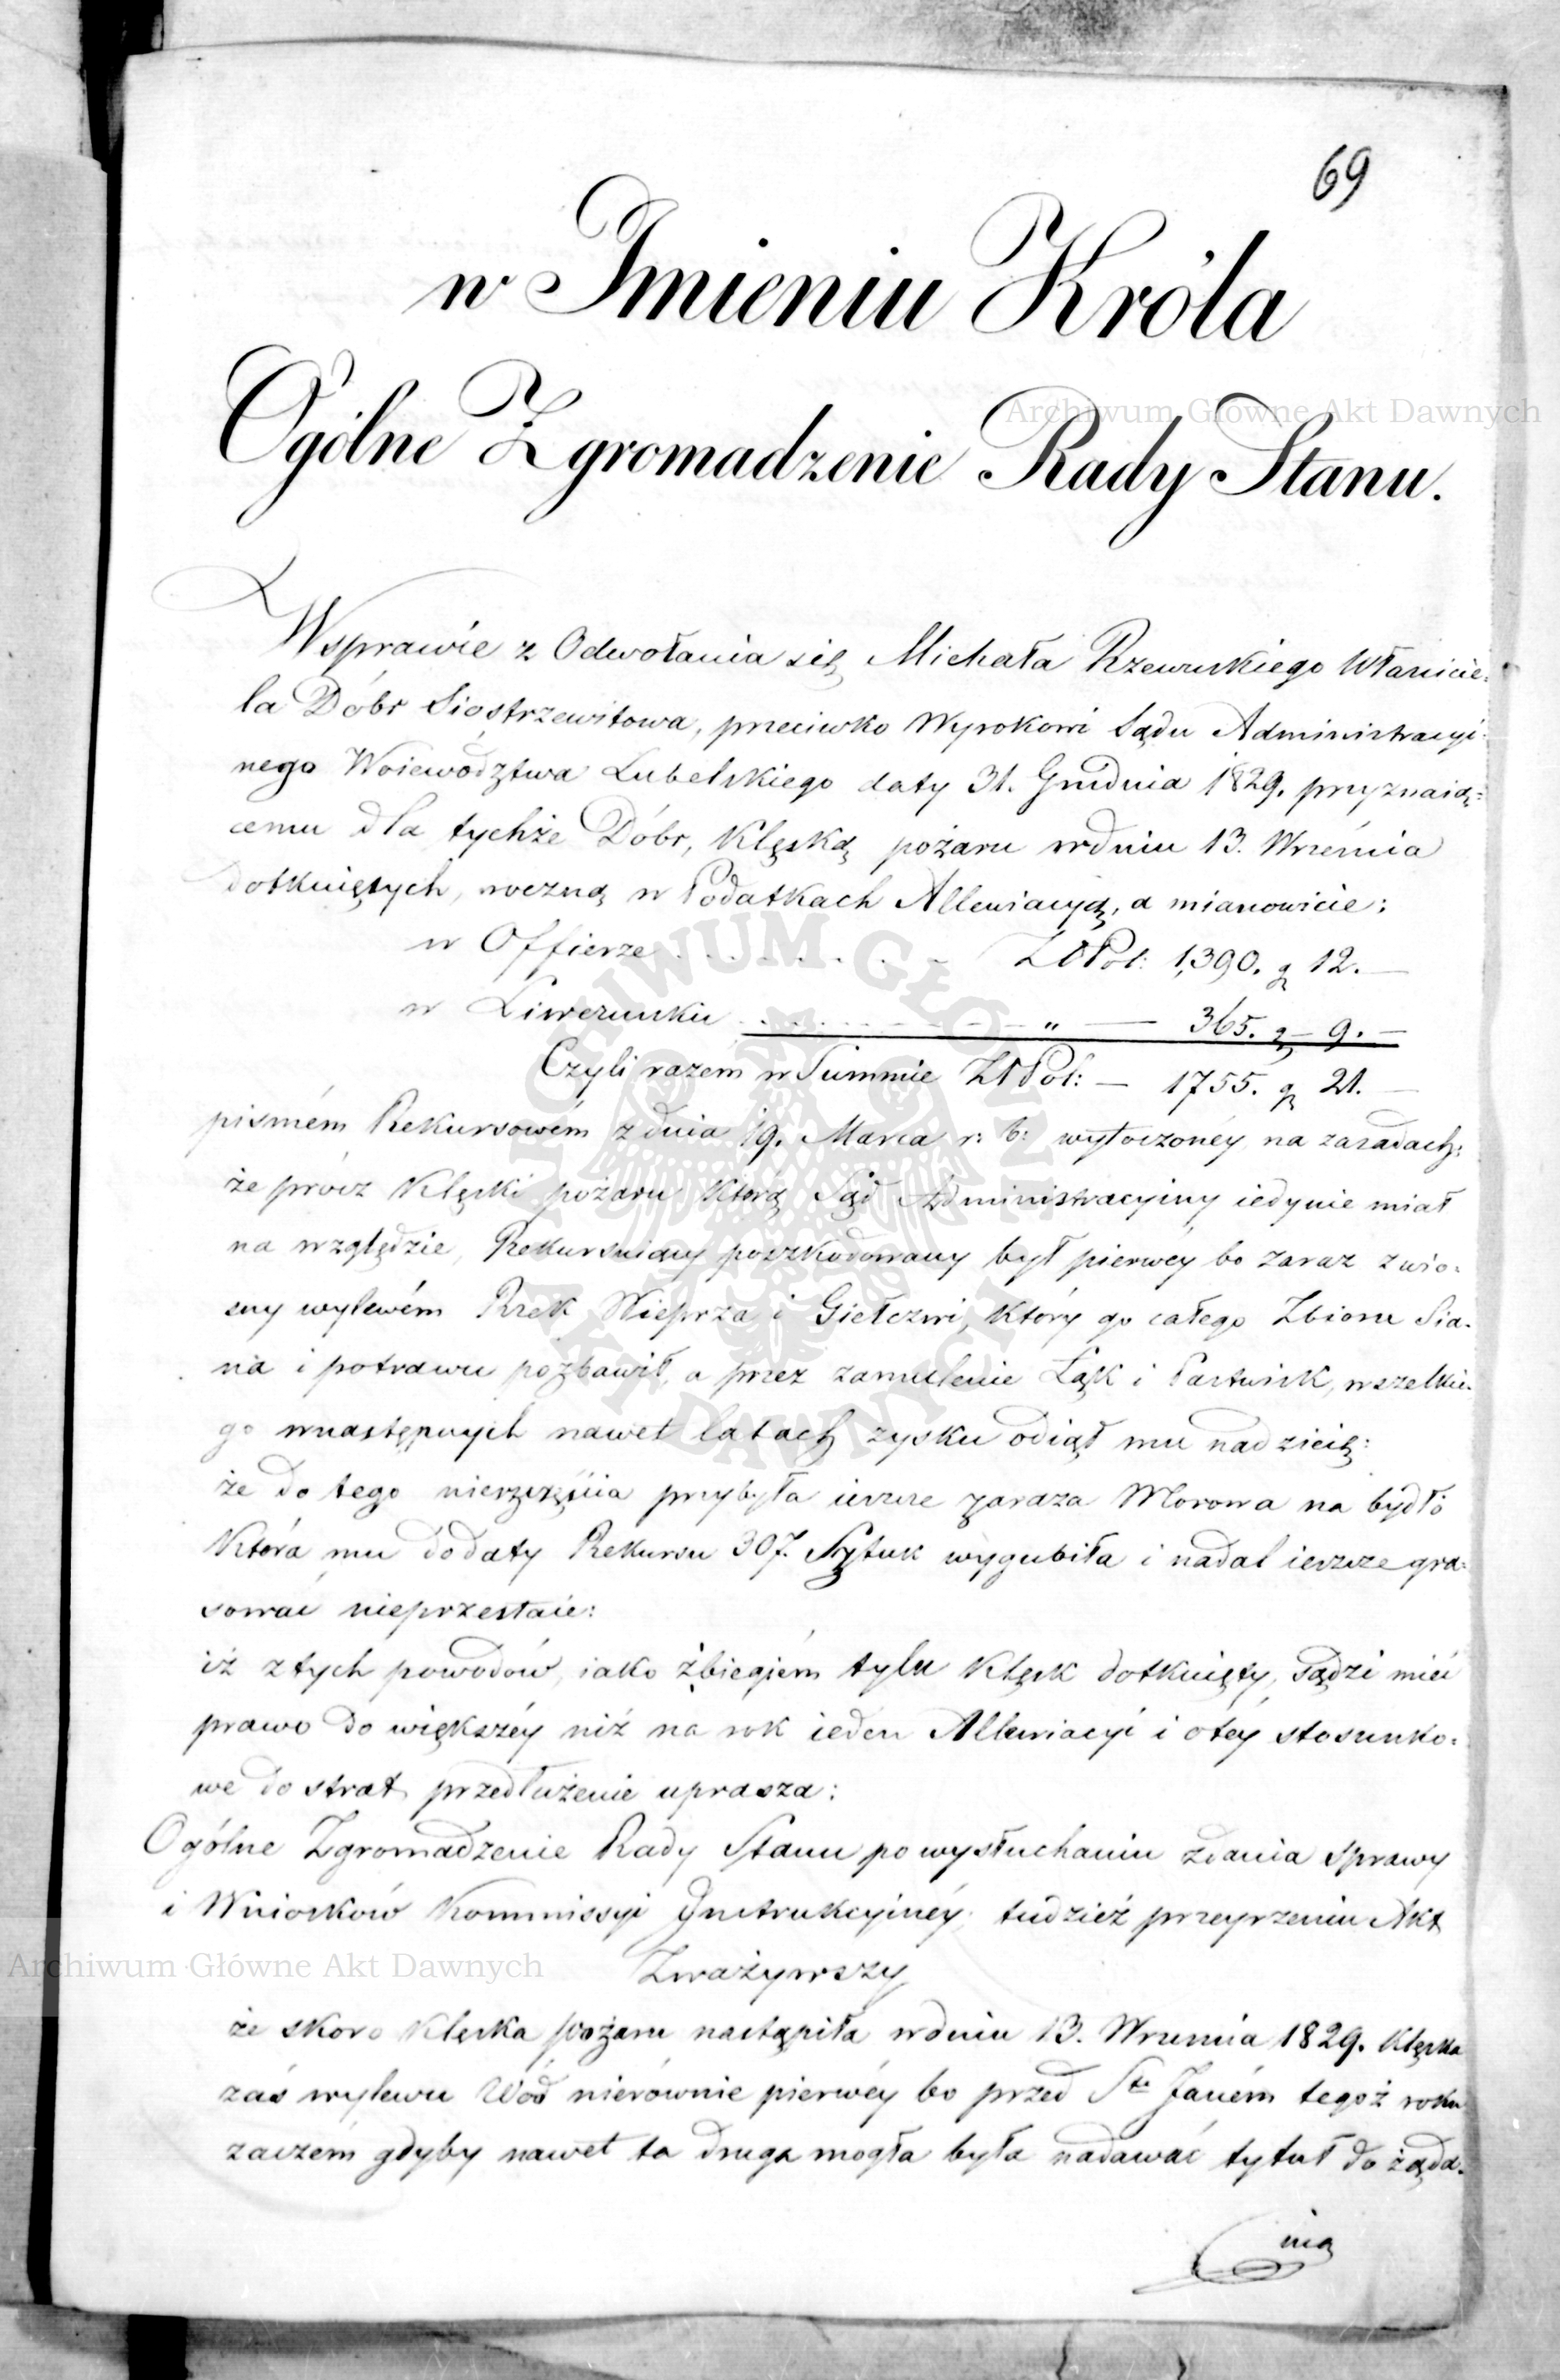 69
w Imieniu Króla
Ogólne Zgromadzenie Rady Stanu.
Wsprawie z Odwołania się Michała Rzewuskiego Właścicie=
la Dóbr Siostrzewitowa, przeciwko Wyrokowi Sądu Administracyi=
nego Woiewodztwa Lubelskiego daty 31. Grudnia 1829. przyznaią=
cemu dla tychże Dóbr, Klęską pożaru wdniu 13. Września
dotkniętych, roczną w Podatkach Allewiacyą, a mianowicie:
w Offierze . . . . . . . . . ZłPol: 1,390. g 12. —
w Liwerunku . . . . . . — — — " — 365. g — 9. —
Czyli razem w Summie ZłPol: — 1755. g 21. —
pismém Rekursowém z dnia 19. Marca r: b: wytoczonéy na zasadach:
że prócz Klęski pożaru którą Sąd Administracyiny iedynie miał
na względzie, Rekursuiący poszkodowany był pierwéy bo zaraz z wio=
sny wylewém Rzek Wieprza i Giełczwi, który go całego Zbioru Sia=
na i potrawu pozbawił, a przez zamulenie Łąk i Pastwisk, wszelkie=
go wnastępnych nawet latach zysku odiął mu nadzieię:
że do tego nieszczęścia przybyła ieszcze zaraza Morowa na bydło
Która mu do daty Rekursu 307. Sztuk wygubiła i nadal ieszcze gra=
sować nieprzestaie:
iż z tych powodów, iako zbiegiém tylu Klęsk dotknięty, sądzi mieć
prawo do większéy niż na rok ieden Allewiacyi i o téy stosunko=
we do strat przedłużenie uprasza:
Ogólne Zgromadzenie Rady Stanu po wysłuchaniu zdania sprawy
i Wniosków Kommissyi Instrukcyinéy, tudzież przeyrzeniu Akt
Zważywszy
że skoro Klęska pożaru nastąpiła wdniu 13. Września 1829. Klęska
zaś wylewu Wód nierównie pierwéy bo przed Stm Janém tegoż roku
zaczém gdyby nawet ta druga mogła była nadawać tytuł do żąda=
nia
Archiwum Główne Akt Dawnych
Archiwum Główne Akt Dawnych
ARCHIWUM GŁÓWNE AKT DAWNYCH